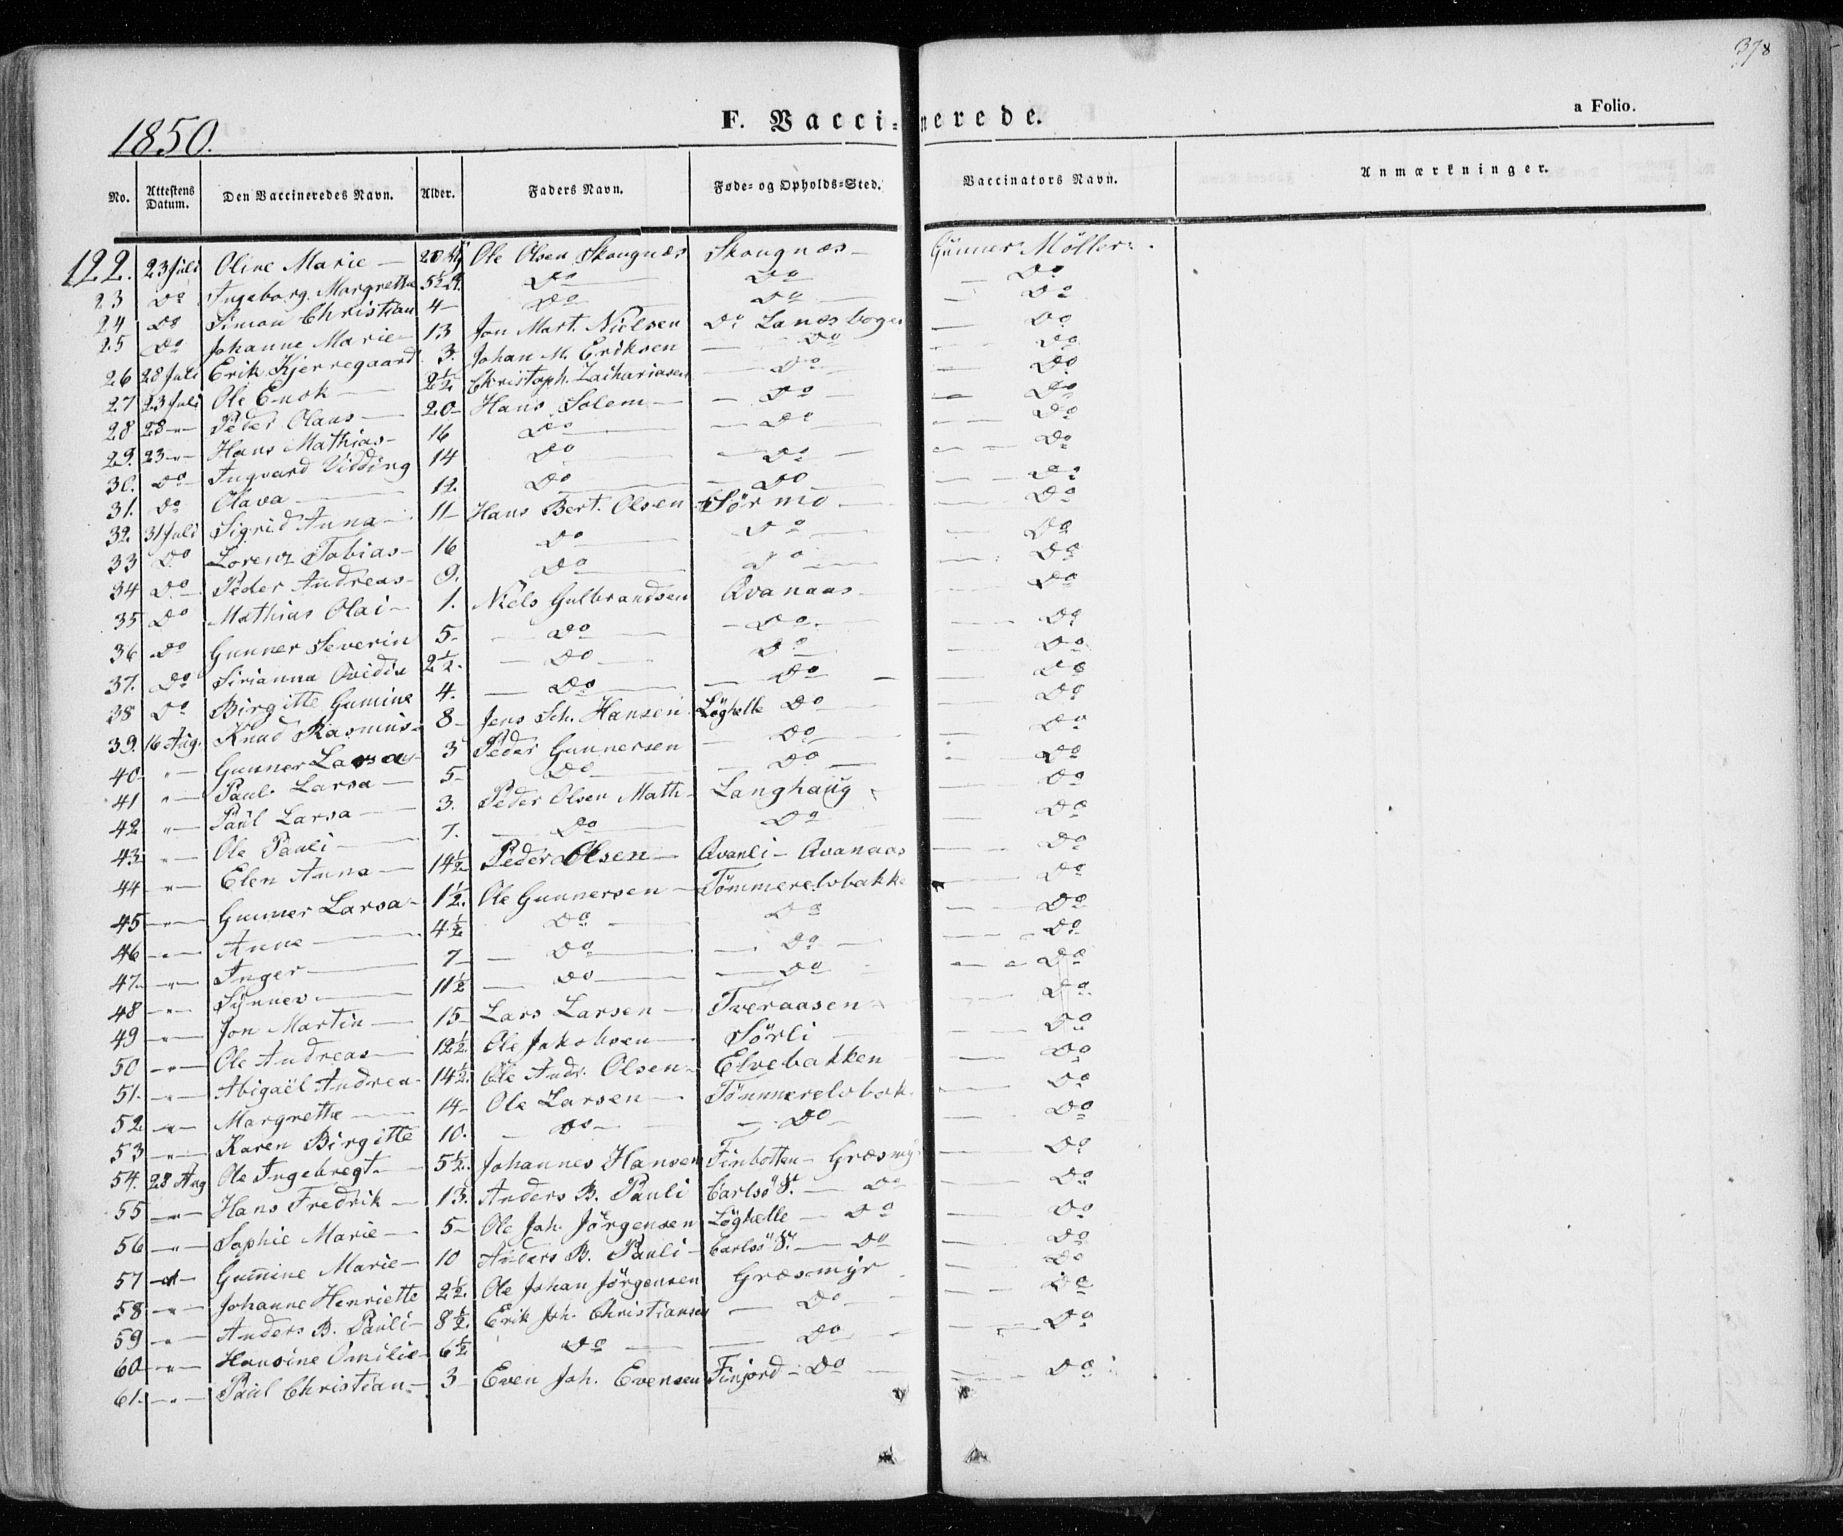 378
1850.
F. Vaccinerede.
a Folio.
No. Attestens Datum. Den Vaccineredes Navn. Alder. Faders Navn. Føde- og Opholds-Sted. Vaccinators Navn. Anmærkninger.
122. 23 Juli Oline Marie — Ole Olsen Skougnæs Skougnæs — Gunner Møller
23 Do Ingeborg Margrethe 5½ Do Do Do
24 Do Simon Christian 4 — Do Do Do
25 Do Johanne Marie — 13 Jon Mart. Nielsen Do Do
26 28 Juli Erik Kjerregaard 3. Johan M. Eriksen Do Do
27 23 Juli Ole Enok — 2½ Christoph. Zachariasen Do Do
28 28 — " — Peder Olaus — 20 — Hans Solem — Do Do
29. 23 — " — Hans Mathias — 16 Do Do Do
30. Do Ingvard Vidding 14 Do Do Do
31. Do Olava — 12 Do Do Do
32. 31 Juli Sigrid Anna — 11 — Hans Bert. Olsen Sørmo — Do
33 Do Lorenz Tobias — 16 Do Do Do
34 Do Peder Andreas — 9. Do Do Do
35 Do Mathias Olai — 1. Niels Gulbrandsen Qvanaas — Do
36 Do Gunner Severin 5 — Do Do Do
37. Do Sirianna 2½. Do Do Do
38 Do Birgitte Gumine 4. Do Do Do
39. 16 Aug. Knud Rasmus — 8 — Jens Sch. Hansen Løghelle Do Do
40 — " — Gunner 3 Peder Gunnersen Do Do
41 — " — Paul Larsa — 5 — Do Do Do
42 — " — Paul Larsa — 3. Peder Olsen Math — Langhaug Do
43 — " — Ole Pauli — 7. Do Do Do
44 — " — Elen Anna — 14½ Peder Olsen — Qvanli — Qvanaas Do
45 — " — Gunner Larsa — 1½. Ole Gunnersen — Tømmerelvbakke Do
46 — " — Anne — 4½ Do Do Do
47 — " — Inger — 7 — Do Do Do
48 — " — Synnev — 11½ Do Do Do
49 — " — Jon Martin — 15 — Lars Larsen — Tveraasen Do
50 — " — Ole Andreas — 12½. Ole Jakobsen — Sørli Do
51. — " — Abigaël Andrea — 14½. Ole Andr. Olsen — Elvebakken Do
52 — " — Margrethe — 14 — Ole Larsen — Tømmerelvbak. Do
53 — " — Karen Birgitte 10. Do Do Do
54. 28 Aug Ole Ingebregt — 5½. Johannes Hansen Finbotten — Græsmyr Do
55 — " — Hans Fredrik — 13. Anders B. Pauli Carlsø S. — Do Do
56 — " — Sophie Marie — 5 — Ole Joh. Jørgensen Løghelle — Do Do
57 — " — Gumine Marie — 10 Anders B. Pauli — Carlsø S. — Do Do
58 — " — Johanne Henriette 2½. Ole Johan Jørgensen Græsmyr Do
59 — " — Anders B. Pauli — 8½. Erik Joh. Christiansen Do Do
60 — " — Hansine Omilie — 6½ Do Do Do
61. — " — Paul Christian — 3 — Even Joh. Evensen Finjord — Do Do